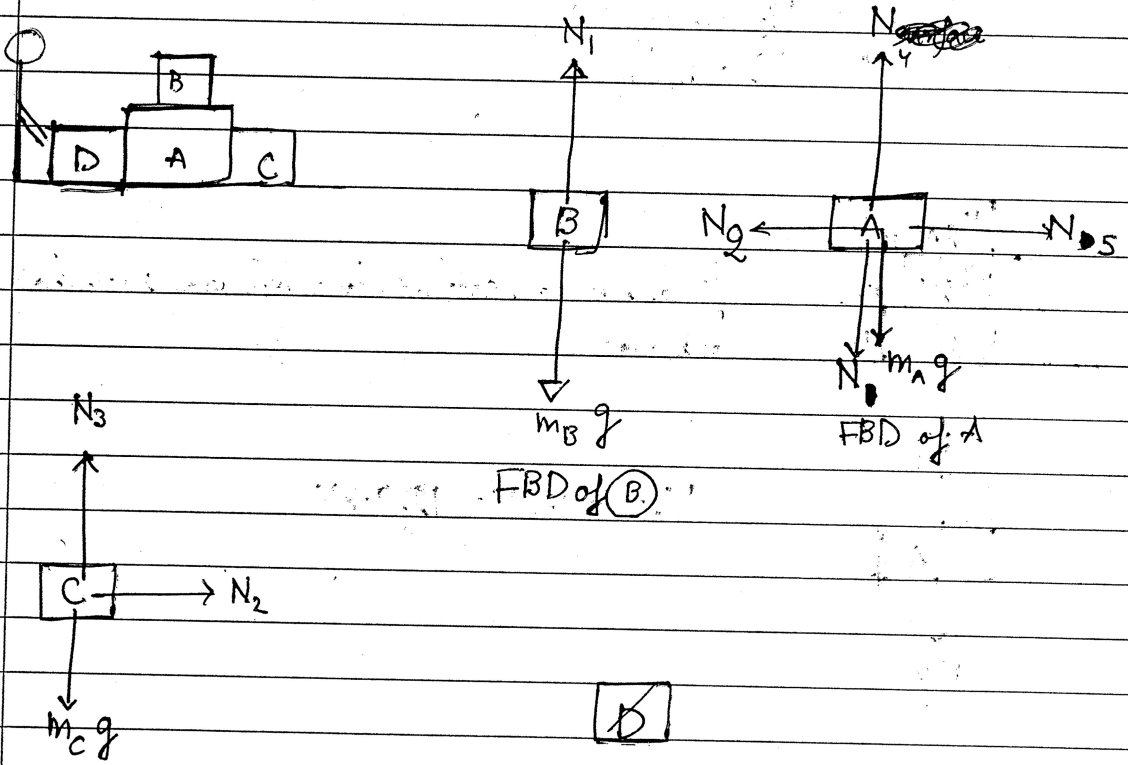 B
D A C
N₁
B
m_B g
FBD of B.
N₄
N₂ A N₅
N m_A g
FBD of A
N₃
C N₂
m_C g
D